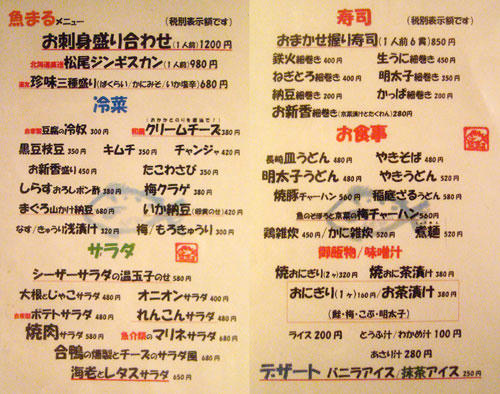 魚まるメニュー (税別表示額です)
お刺身盛り合わせ(1人前)1200円
北海道直送 松尾ジンギスカン(1人前)980円
珍味三種盛り(ばくらい/かにみそ/いか塩辛)680円
冷菜
自家製 豆腐の冷奴 300円 和風クリームチーズ 380円
黒豆枝豆 350円 キムチ 350円 チャンジャ 420円
お新香盛り 450円 たこわさび 350円
しらすおろしポン酢 380円 梅クラゲ 380円
まぐろ山かけ納豆 680円 いか納豆(卵黄のせ)420円
なす/きゅうり浅漬け 320円 梅/もろきゅうり 300円
サラダ
シーザーサラダの温玉子のせ 580円
大根とじゃこサラダ 480円 オニオンサラダ 400円
自家製 ポテトサラダ 480円 れんこんサラダ 500円
焼肉サラダ 580円 魚介類のマリネサラダ 680円
合鴨の燻製とチーズのサラダ風 680円
海老とレタスサラダ 650円
寿司 (税別表示額です)
おまかせ握り寿司(1人前6貫)850円
鉄火細巻き 400円 生うに細巻き 450円
ねぎとろ細巻き 400円 明太子細巻き 350円
納豆細巻き 200円 かっぱ細巻き 200円
お新香細巻き(京菜漬けとたくわん)280円
お食事
長崎皿うどん 480円 やきそば 480円
明太子うどん 480円 やきうどん 520円
焼豚チャーハン 560円 稲庭ざるうどん 580円
魚のそぼろと京菜の梅チャーハン 560円
鶏雑炊 450円/かに雑炊 520円 煮麺 520円
御飯物/味噌汁
焼おにぎり(2ヶ)320円 焼おに茶漬け 380円
おにぎり(1ヶ)160円/お茶漬け 380円
(鮭・梅・こぶ・明太子)
ライス 200円 とうふ汁/わかめ汁 100円
あさり汁 280円
デザート バニラアイス/抹茶アイス 250円